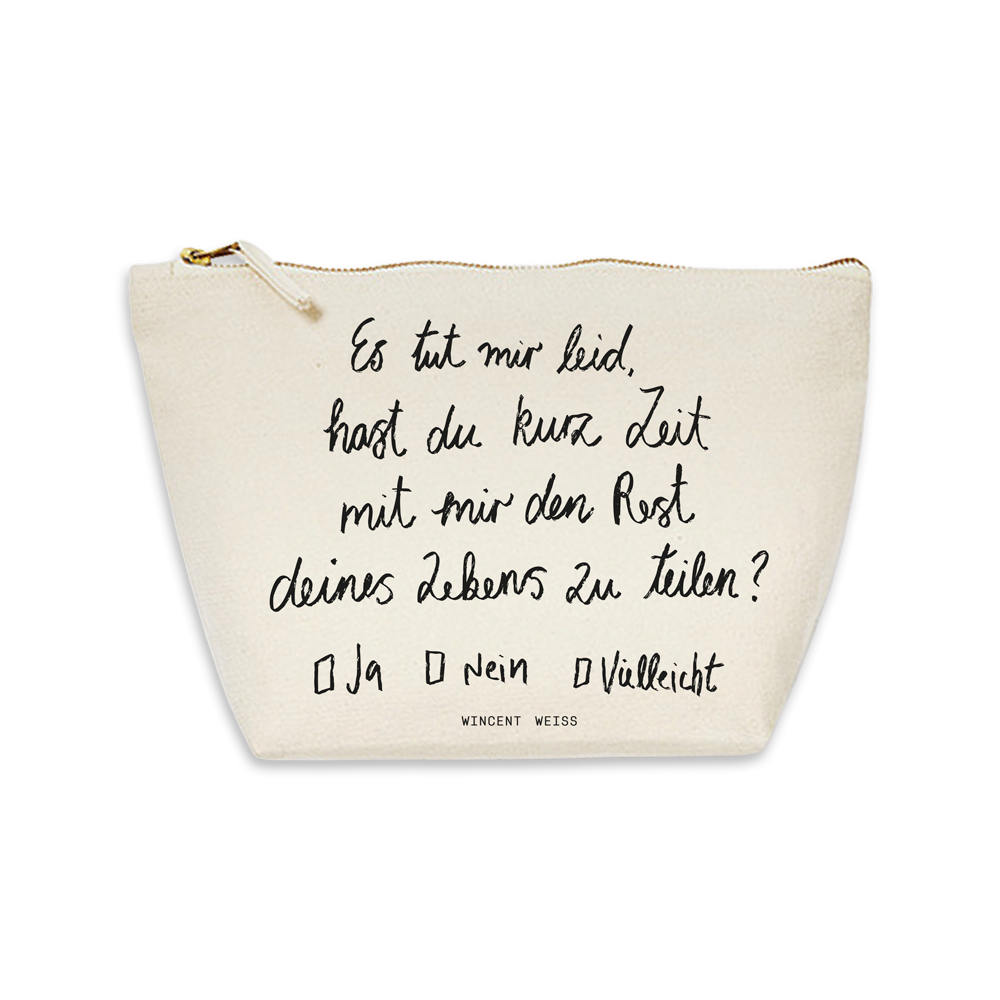 Es tut mir leid,
hast du kurz Zeit
mit mir den Rest
deines Lebens zu teilen?
☐ Ja ☐ Nein ☐ Vielleicht
WINCENT WEISS